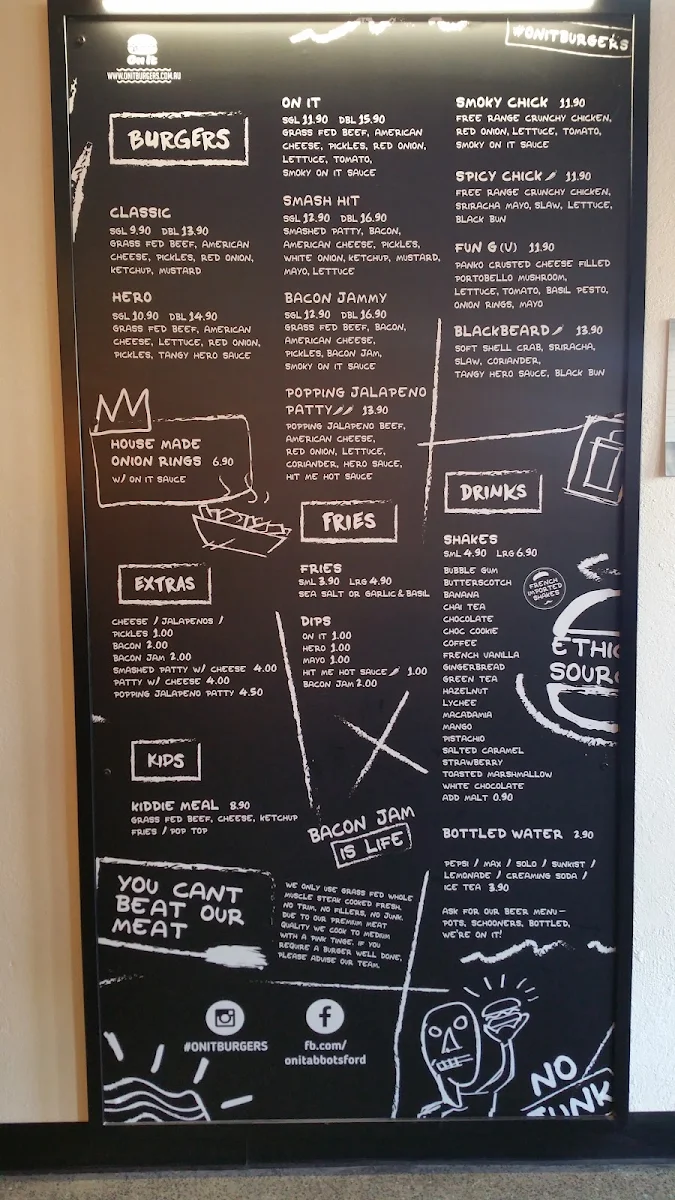 On It
WWW.ONITBURGERS.COM.AU
#ONITBURGERS
BURGERS
CLASSIC
SGL 9.90 DBL 13.90
GRASS FED BEEF, AMERICAN
CHEESE, PICKLES, RED ONION,
KETCHUP, MUSTARD
HERO
SGL 10.90 DBL 14.90
GRASS FED BEEF, AMERICAN
CHEESE, LETTUCE, RED ONION,
PICKLES, TANGY HERO SAUCE
HOUSE MADE
ONION RINGS 6.90
W/ ON IT SAUCE
ON IT
SGL 11.90 DBL 15.90
GRASS FED BEEF, AMERICAN
CHEESE, PICKLES, RED ONION,
LETTUCE, TOMATO,
SMOKY ON IT SAUCE
SMASH HIT
SGL 12.90 DBL 16.90
SMASHED PATTY, BACON,
AMERICAN CHEESE, PICKLES,
WHITE ONION, KETCHUP, MUSTARD,
MAYO, LETTUCE
BACON JAMMY
SGL 12.90 DBL 16.90
GRASS FED BEEF, BACON,
AMERICAN CHEESE,
PICKLES, BACON JAM,
SMOKY ON IT SAUCE
POPPING JALAPENO
PATTY 13.90
POPPING JALAPENO BEEF,
AMERICAN CHEESE,
RED ONION, LETTUCE,
CORIANDER, HERO SAUCE,
HIT ME HOT SAUCE
SMOKY CHICK 11.90
FREE RANGE CRUNCHY CHICKEN,
RED ONION, LETTUCE, TOMATO,
SMOKY ON IT SAUCE
SPICY CHICK 11.90
FREE RANGE CRUNCHY CHICKEN,
SRIRACHA MAYO, SLAW, LETTUCE,
BLACK BUN
FUN G (V) 11.90
PANKO CRUSTED CHEESE FILLED
PORTOBELLO MUSHROOM,
LETTUCE, TOMATO, BASIL PESTO,
ONION RINGS, MAYO
BLACKBEARD 13.90
SOFT SHELL CRAB, SRIRACHA,
SLAW, CORIANDER,
TANGY HERO SAUCE, BLACK BUN
EXTRAS
CHEESE / JALAPENOS /
PICKLES 1.00
BACON 2.00
BACON JAM 2.00
SMASHED PATTY W/ CHEESE 4.00
PATTY W/ CHEESE 4.00
POPPING JALAPENO PATTY 4.50
FRIES
FRIES
SML 3.90 LRG 4.90
SEA SALT OR GARLIC & BASIL
DIPS
ON IT 1.00
HERO 1.00
MAYO 1.00
HIT ME HOT SAUCE 1.00
BACON JAM 2.00
DRINKS
SHAKES
SML 4.90 LRG 6.90
BUBBLE GUM
BUTTERSCOTCH
BANANA
CHAI TEA
CHOCOLATE
CHOC COOKIE
COFFEE
FRENCH VANILLA
GINGERBREAD
GREEN TEA
HAZELNUT
LYCHEE
MACADAMIA
MANGO
PISTACHIO
SALTED CARAMEL
STRAWBERRY
TOASTED MARSHMALLOW
WHITE CHOCOLATE
ADD MALT 0.90
FRENCH
IMPORTED
SHAKES
ETHIC
SOURC
BOTTLED WATER 2.90
PEPSI / MAX / SOLO / SUNKIST /
LEMONADE / CREAMING SODA /
ICE TEA 3.90
ASK FOR OUR BEER MENU -
POTS, SCHOONERS, BOTTLED,
WE'RE ON IT!
KIDS
KIDDIE MEAL 8.90
GRASS FED BEEF, CHEESE, KETCHUP
FRIES / POP TOP
BACON JAM
IS LIFE
YOU CANT
BEAT OUR
MEAT
WE ONLY USE GRASS FED WHOLE
MUSCLE STEAK COOKED FRESH.
NO TRIM, NO FILLERS, NO JUNK.
DUE TO OUR PREMIUM MEAT
QUALITY WE COOK TO MEDIUM
WITH A PINK TINGE. IF YOU
REQUIRE A BURGER WELL DONE,
PLEASE ADVISE OUR TEAM.
#ONITBURGERS
fb.com/
onitabbotsford
NO
JUNK